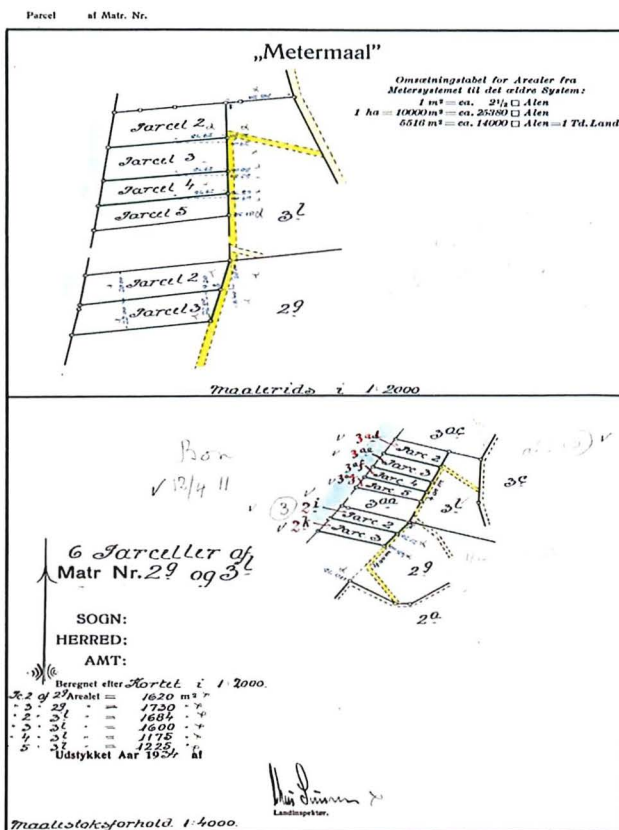 Parcel af Matr. Nr.
„Metermaal"
Omsætningstabel for Arealer fra
Metersystemet til det ældre System:
1 m² = ca. 2½ □ Alen
1 ha = 10000 m² = ca. 25380 □ Alen
5516 m² = ca. 14000 □ Alen = 1 Td. Land
Parcel 2
Parcel 3
Parcel 4
Parcel 5
3l
Parcel 2
Parcel 3
2g
Maalerids i 1:2000
3ad
3ae
3af
3ag
2i
2k
3
3ac
Parc 2
Parc 3
Parc 4
Parc 5
3aa
Parc 2
Parc 3
3l
3c
2g
2a
v 12/4 11
6 Parceller af
Matr Nr. 2g og 3l
SOGN:
HERRED:
AMT:
Beregnet efter Kortet i 1:2000.
Pc. 2 af 2g Arealet = 1620 m²
" 3 " 2g " = 1730 "
" 2 " 3l " = 1684 "
" 3 " 3l " = 1600 "
" 4 " 3l " = 1175 "
" 5 " 3l " = 1225 "
Udstykket Aar 1934 af
Landinspektør.
Maalestoksforhold 1:4000.